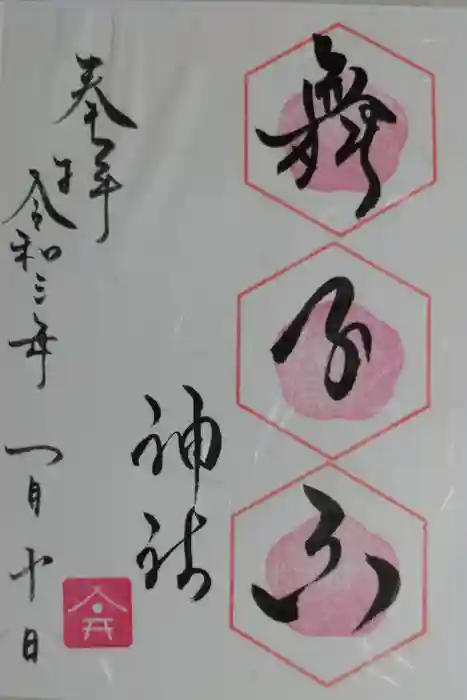 舞子六
神社
奉拝
令和三年 一月十日